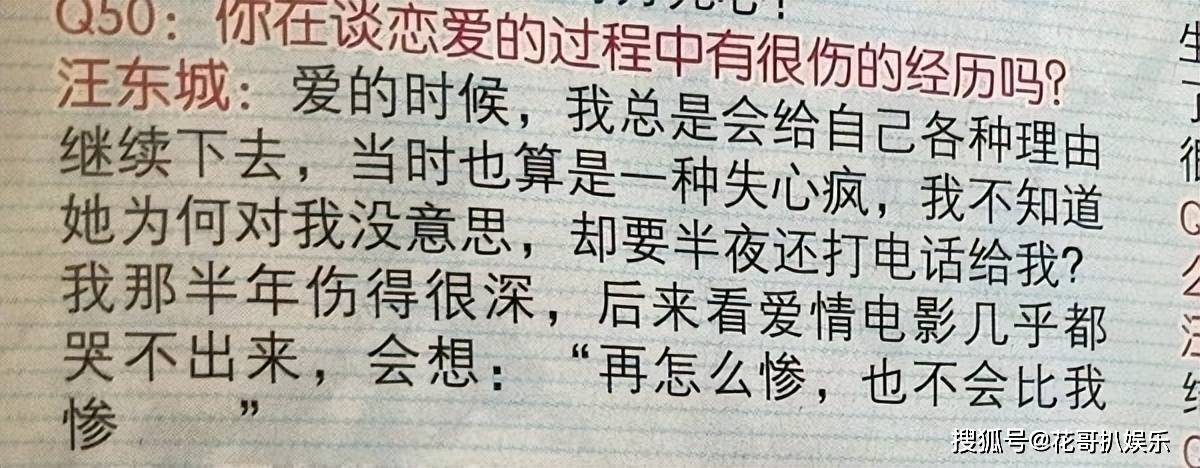 Q50：你在谈恋爱的过程中有很伤的经历吗？
汪东城：爱的时候，我总是会给自己各种理由
继续下去，当时也算是一种失心疯，我不知道
她为何对我没意思，却要半夜还打电话给我？
我那半年伤得很深，后来看爱情电影几乎都
哭不出来，会想：“再怎么惨，也不会比我
惨　　”
搜狐号@花哥扒娱乐